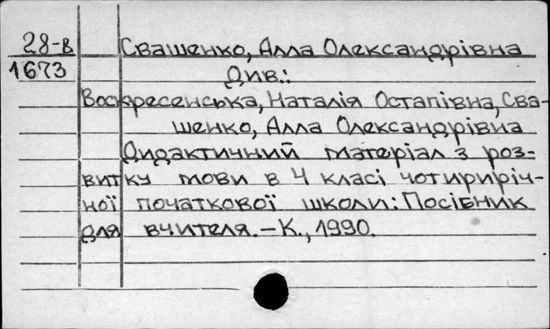 28-в Свашенко, Алла Олександрівна
1673 Див.:
Воскресенська, Наталія Остапівна, Сва-
шенко, Алла Олександрівна
Дидактичний матеріал з роз-
витку мови в 4 класі чотириріч-
ної початкової школи: Посібник
для вчителя. – К., 1990.